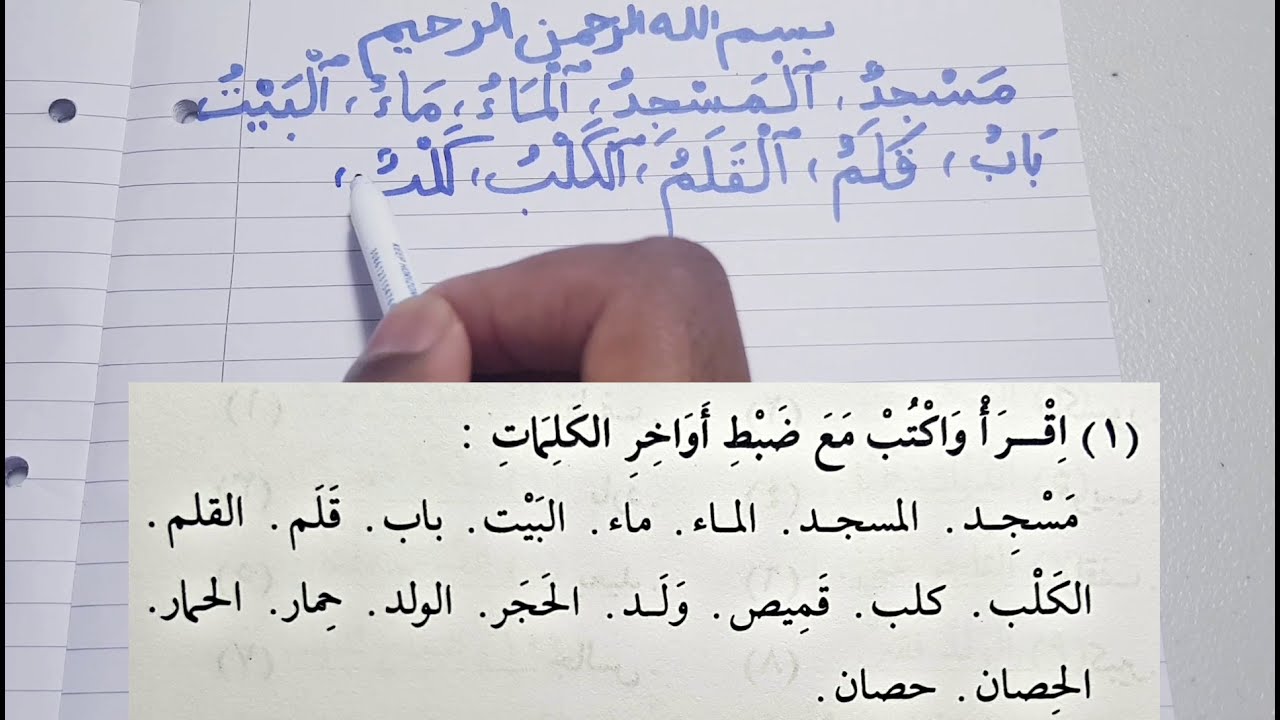 بسم الله الرحمن الرحيم
مَسْجِدٌ، ٱلْمَسْجِدُ، ٱلْمَاءُ، مَاءٌ، ٱلْبَيْتُ
بَابٌ، قَلَمٌ، ٱلْقَلَمُ، ٱلْكَلْبُ، كَلْبٌ،
(١) اِقْـرَأْ وَاكْتُبْ مَعَ ضَبْطِ أَوَاخِرِ الكَلِمَاتِ :
مَسْجِـد. المسجـد. المـاء. ماء. البَيْت. باب. قَلَم. القلم.
الكَلْب. كلب. قَمِيص. وَلَـد. الحَجَر. الولد. حِمار. الحمار.
الحِصان. حصان.